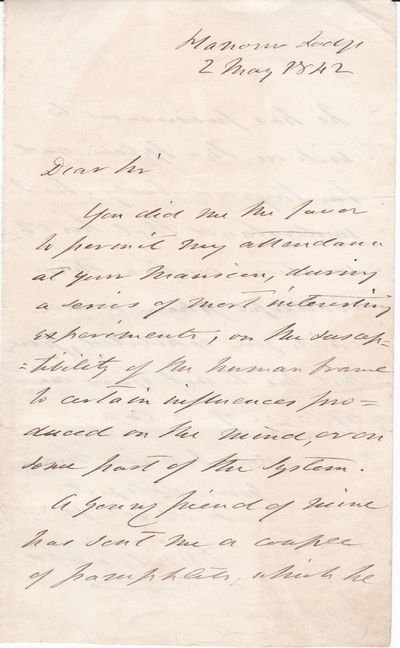 Hanover Lodge
2 May 1842
Dear Sir
You did me the favor
to permit my attendance
at your Mansion, during
a series of most interesting
experiments, on the suscep-
-tibility of the human frame
to certain influences pro=
duced on the mind, or on
some part of the System.
A young friend of mine
has sent me a couple
of pamphlets, which he